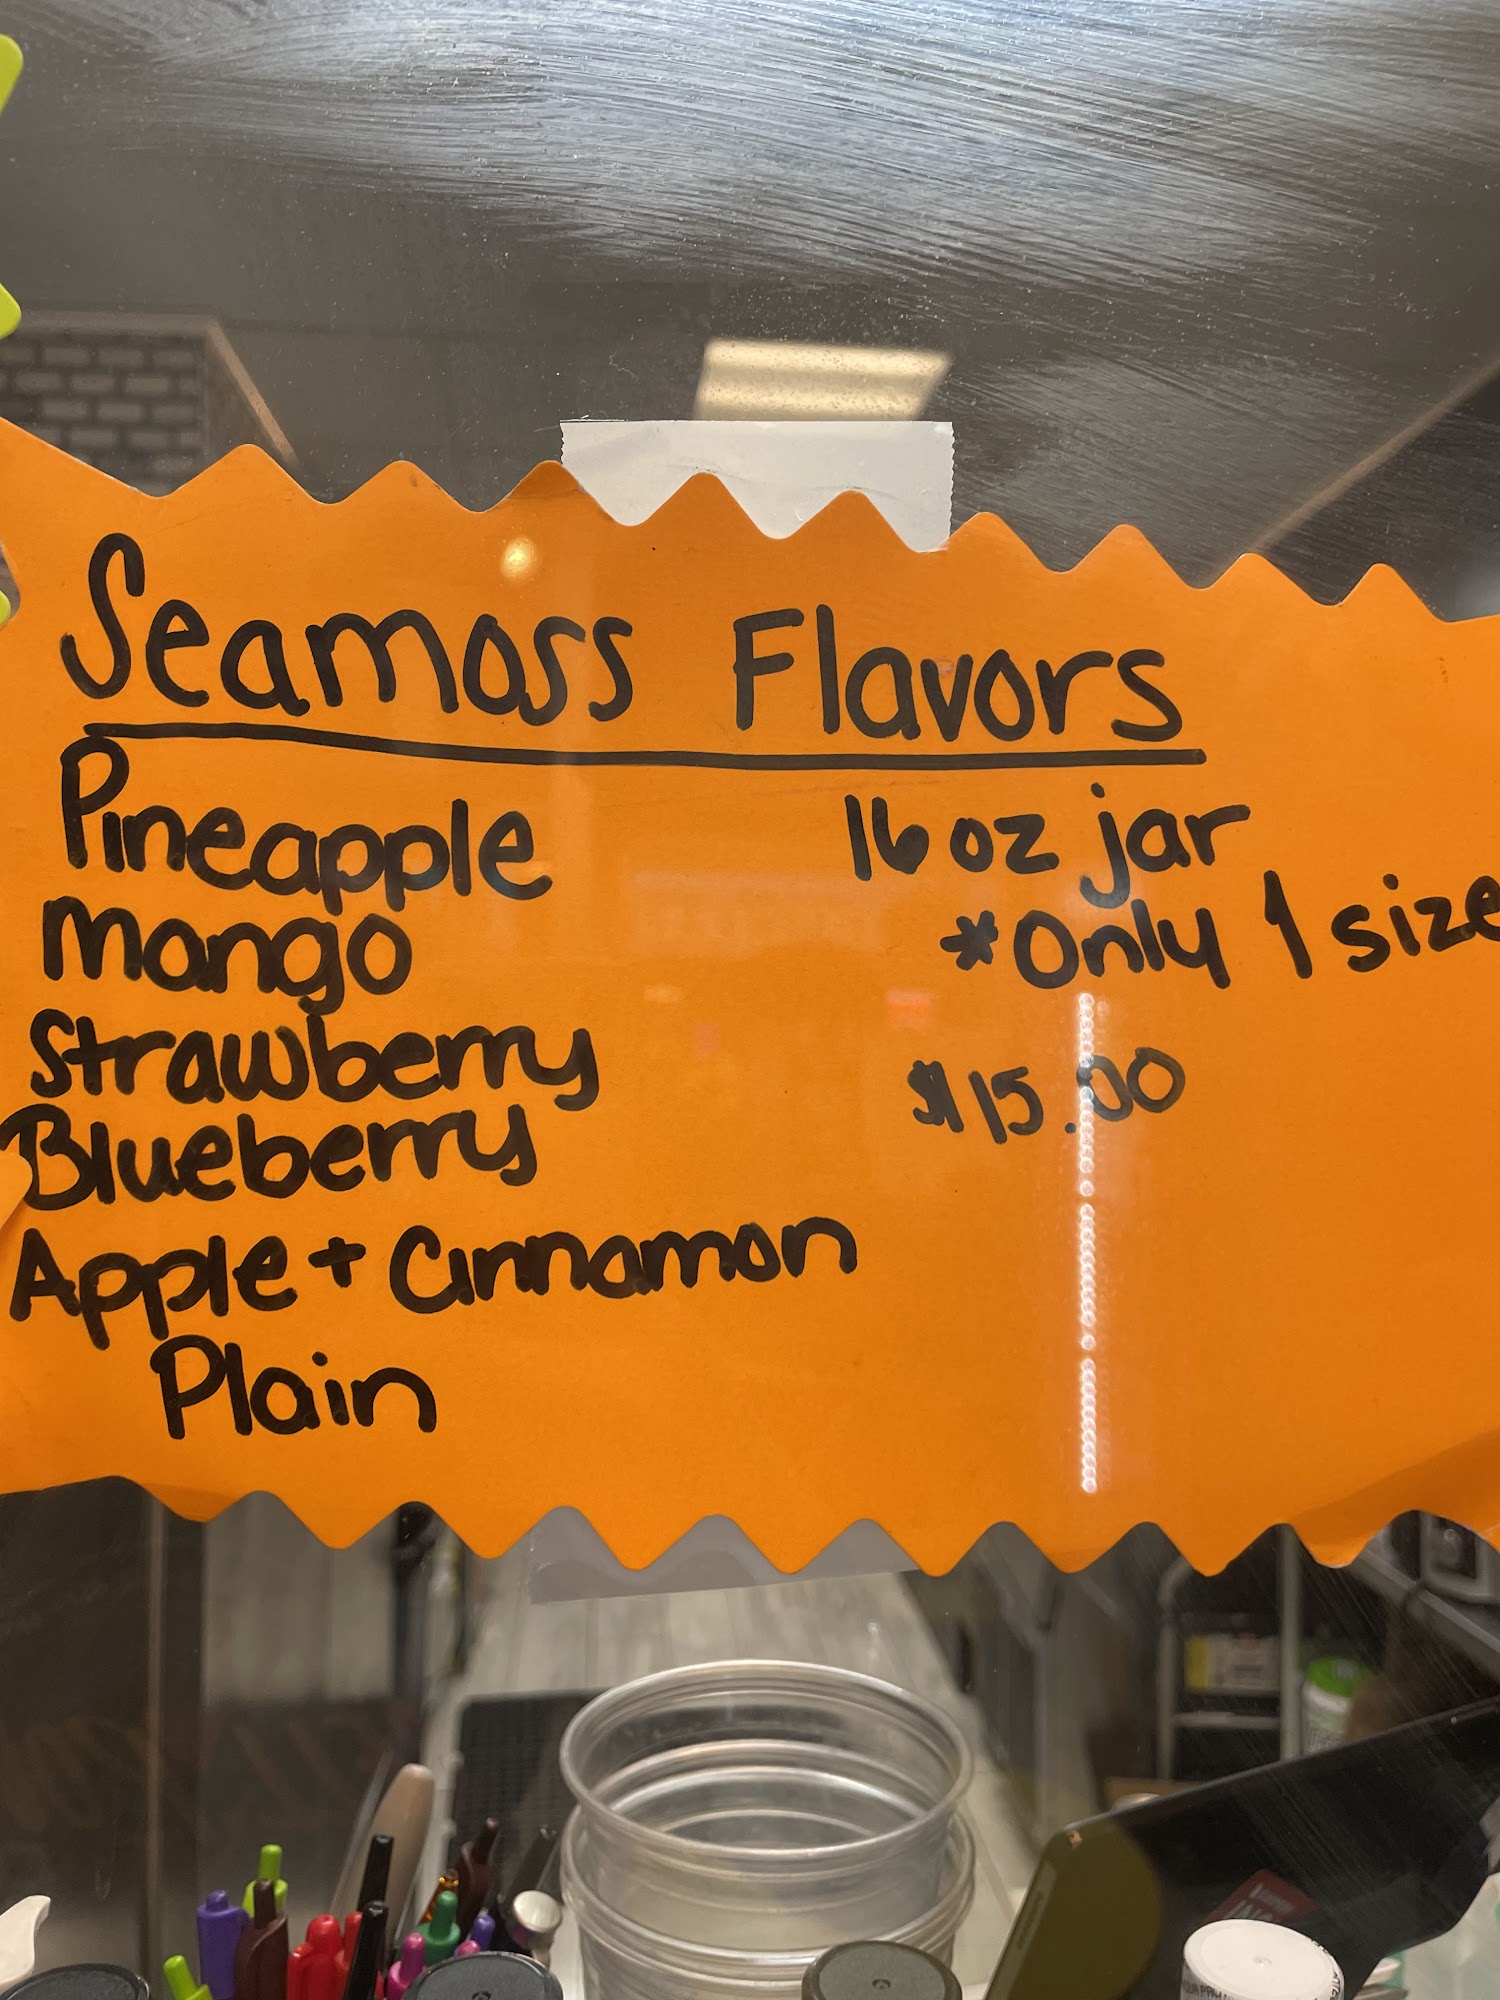 Seamoss Flavors
Pineapple
Mango
Strawberry
Blueberry
Apple + Cinnamon
Plain
16 oz jar
*Only 1 size
$15.00